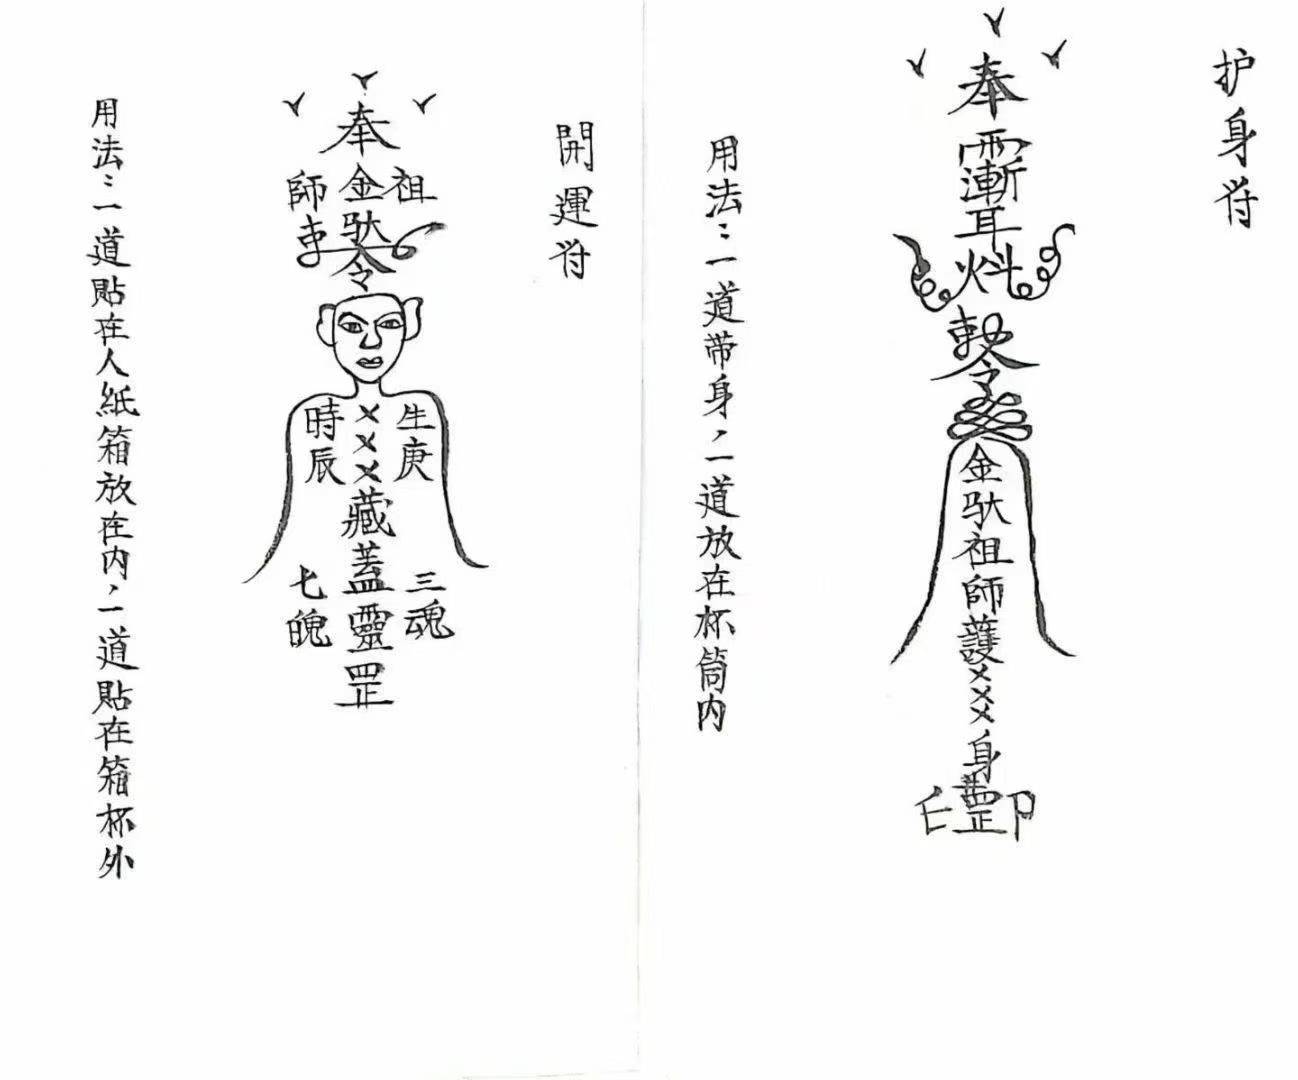 护身符
奉
敕令
金馱祖師護
×××
身
罡
印
用法：一道带身、一道放在杯筒内
開運符
奉
祖師
金馱
敕令
生庚
時辰
×××
藏蓋靈罡
三魂
七魄
用法：一道貼在人紙箱放在内、一道貼在箱杯外